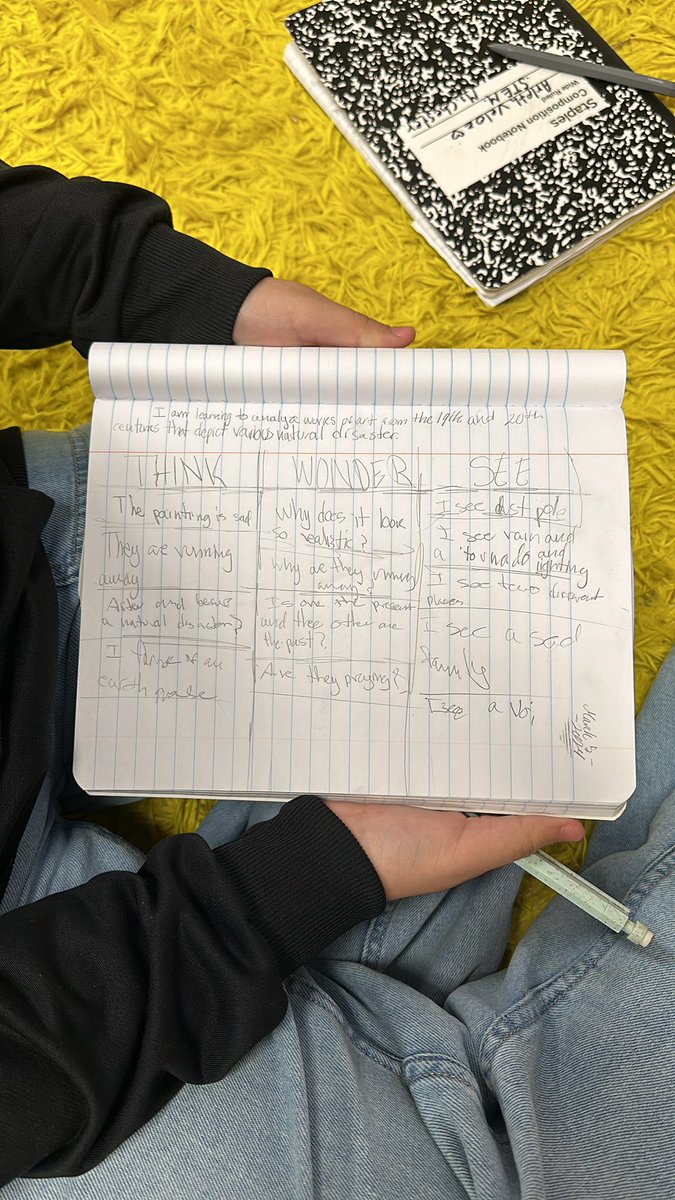 Staples
Composition Notebook
Wide Ruled
STEM
I am learning to analyze works of art from the 19th and 20th
centuries that depict various natural disaster.
THINK
The painting is sad
They are running
away
After and before
a natural disaster?
I think of an
earth quake
WONDER
Why does it look
so realistic?
Why are they running
away?
Is one the present
and the other are
the past?
Are they praying?
SEE
I see dust pole
I see rain and
a tornado and
lighting
I see two different
places
I see a sad
family
I see a
March 5
2024